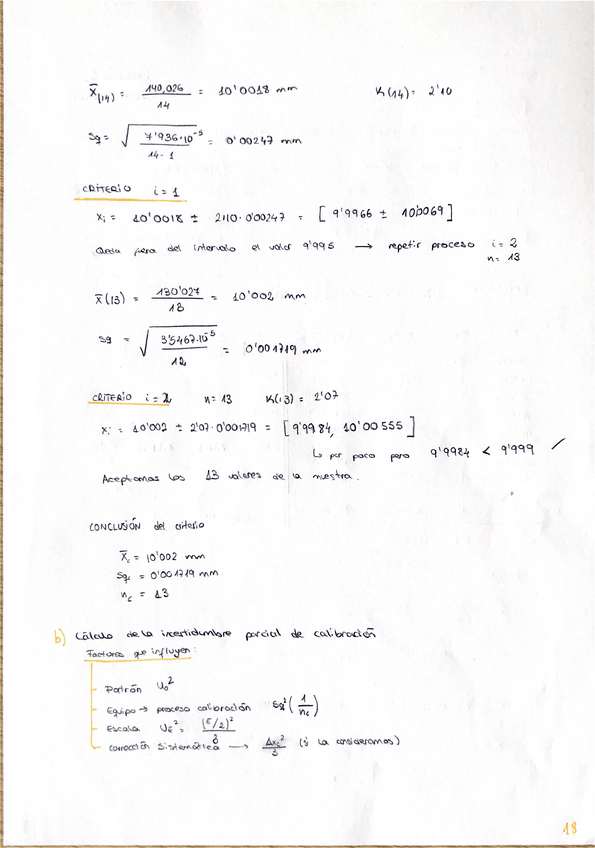 X̄(14) = 140,026 / 14 = 10'0018 mm K(14) = 2'10
Sq = √(7'936·10⁻⁵ / 14-1) = 0'00247 mm
CRITERIO i = 1
xi = 10'0018 ± 2'10·0'00247 = [9'9966 ± 10'0069]
Queda fuera del intervalo el valor 9'995 → repetir proceso i = 2
n = 13
X̄(13) = 130'027 / 13 = 10'002 mm
Sq = √(3'5467·10⁻⁵ / 12) = 0'001719 mm
CRITERIO i = 2 n = 13 K(13) = 2'07
xi = 10'002 ± 2'07·0'001719 = [9'9984, 10'00555]
↳ por poco pero 9'9984 < 9'999 ✓
Aceptamos los 13 valores de la muestra.
CONCLUSIÓN del criterio
X̄c = 10'002 mm
Sqc = 0'001719 mm
nc = 13
b) Cálculo de la incertidumbre parcial de calibración
Factores que influyen:
Patrón U₀²
Equipo → proceso calibración Sq²(1/nc)
Escala UE² = (E/2)² / 3
Corrección Sistemática → Δxc² / 3 (si la consideramos)
18